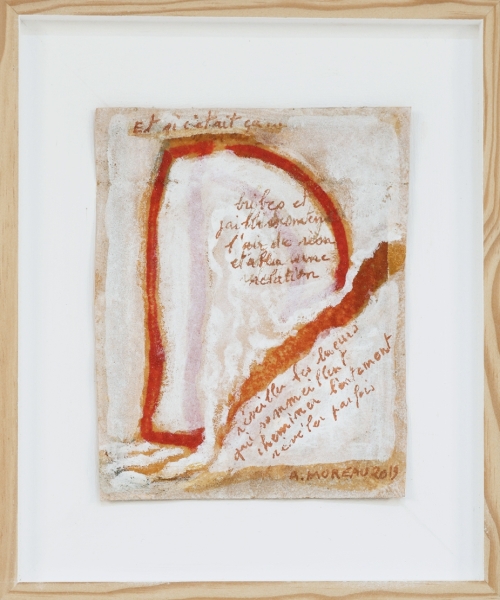 Et si c'était ça
bribes et
jaillissement
l'air de rien
établir une
relation
réveiller les lueurs
qui sommeillent
cheminer lentement
révéler parfois
A. MUREAU 2019